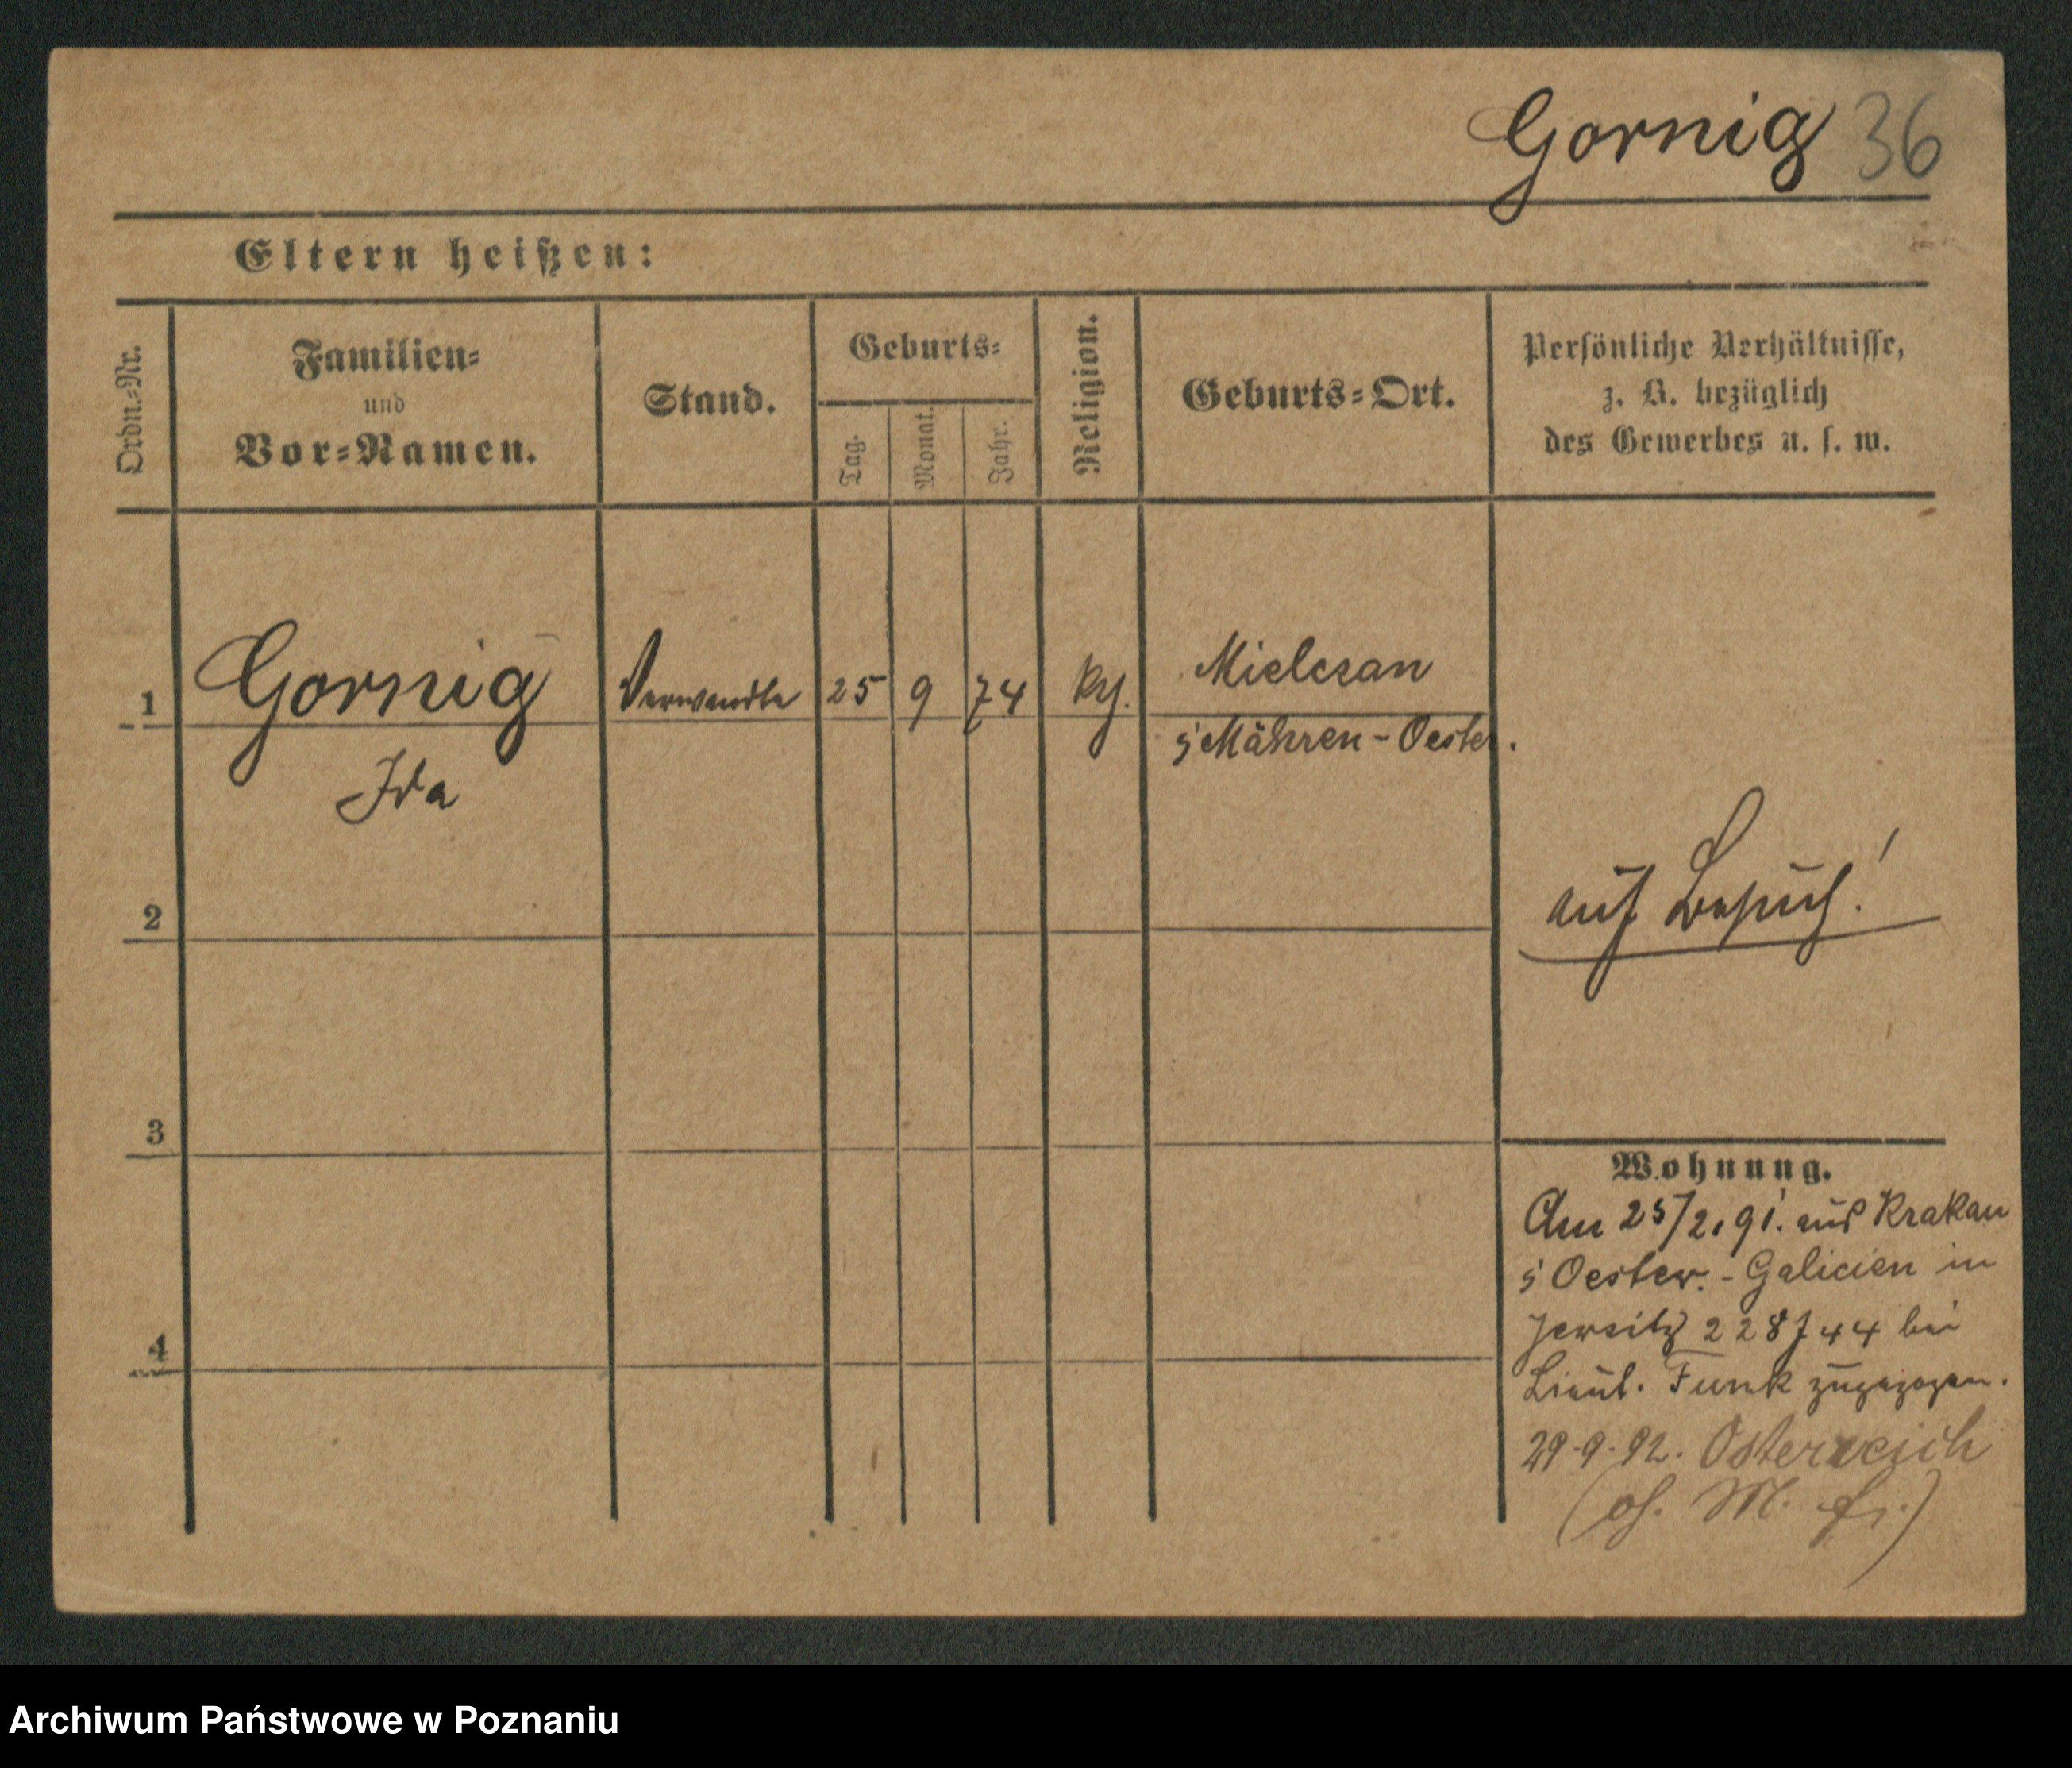 Gornig 36
Eltern heißen:
Ordn.-Nr.
Familien-
und
Vor-Namen.
Stand.
Geburts-
Tag.
Monat.
Jahr.
Religion.
Geburts-Ort.
Persönliche Verhältnisse,
z. B. bezüglich
des Gewerbes u. s. w.
1 Gornig Verwandte 25 9 74 kg. Mielczan
Ida
Mähren-Oester.
2
auf Besuch!
3
4
Wohnung.
Am 25/2.91. aus Krakau
Oester.-Galicien in
Jersitz 228 J 44 bei
Lieut. Funk zugezogen.
29.9.92. Österreich
M.
Archiwum Państwowe w Poznaniu